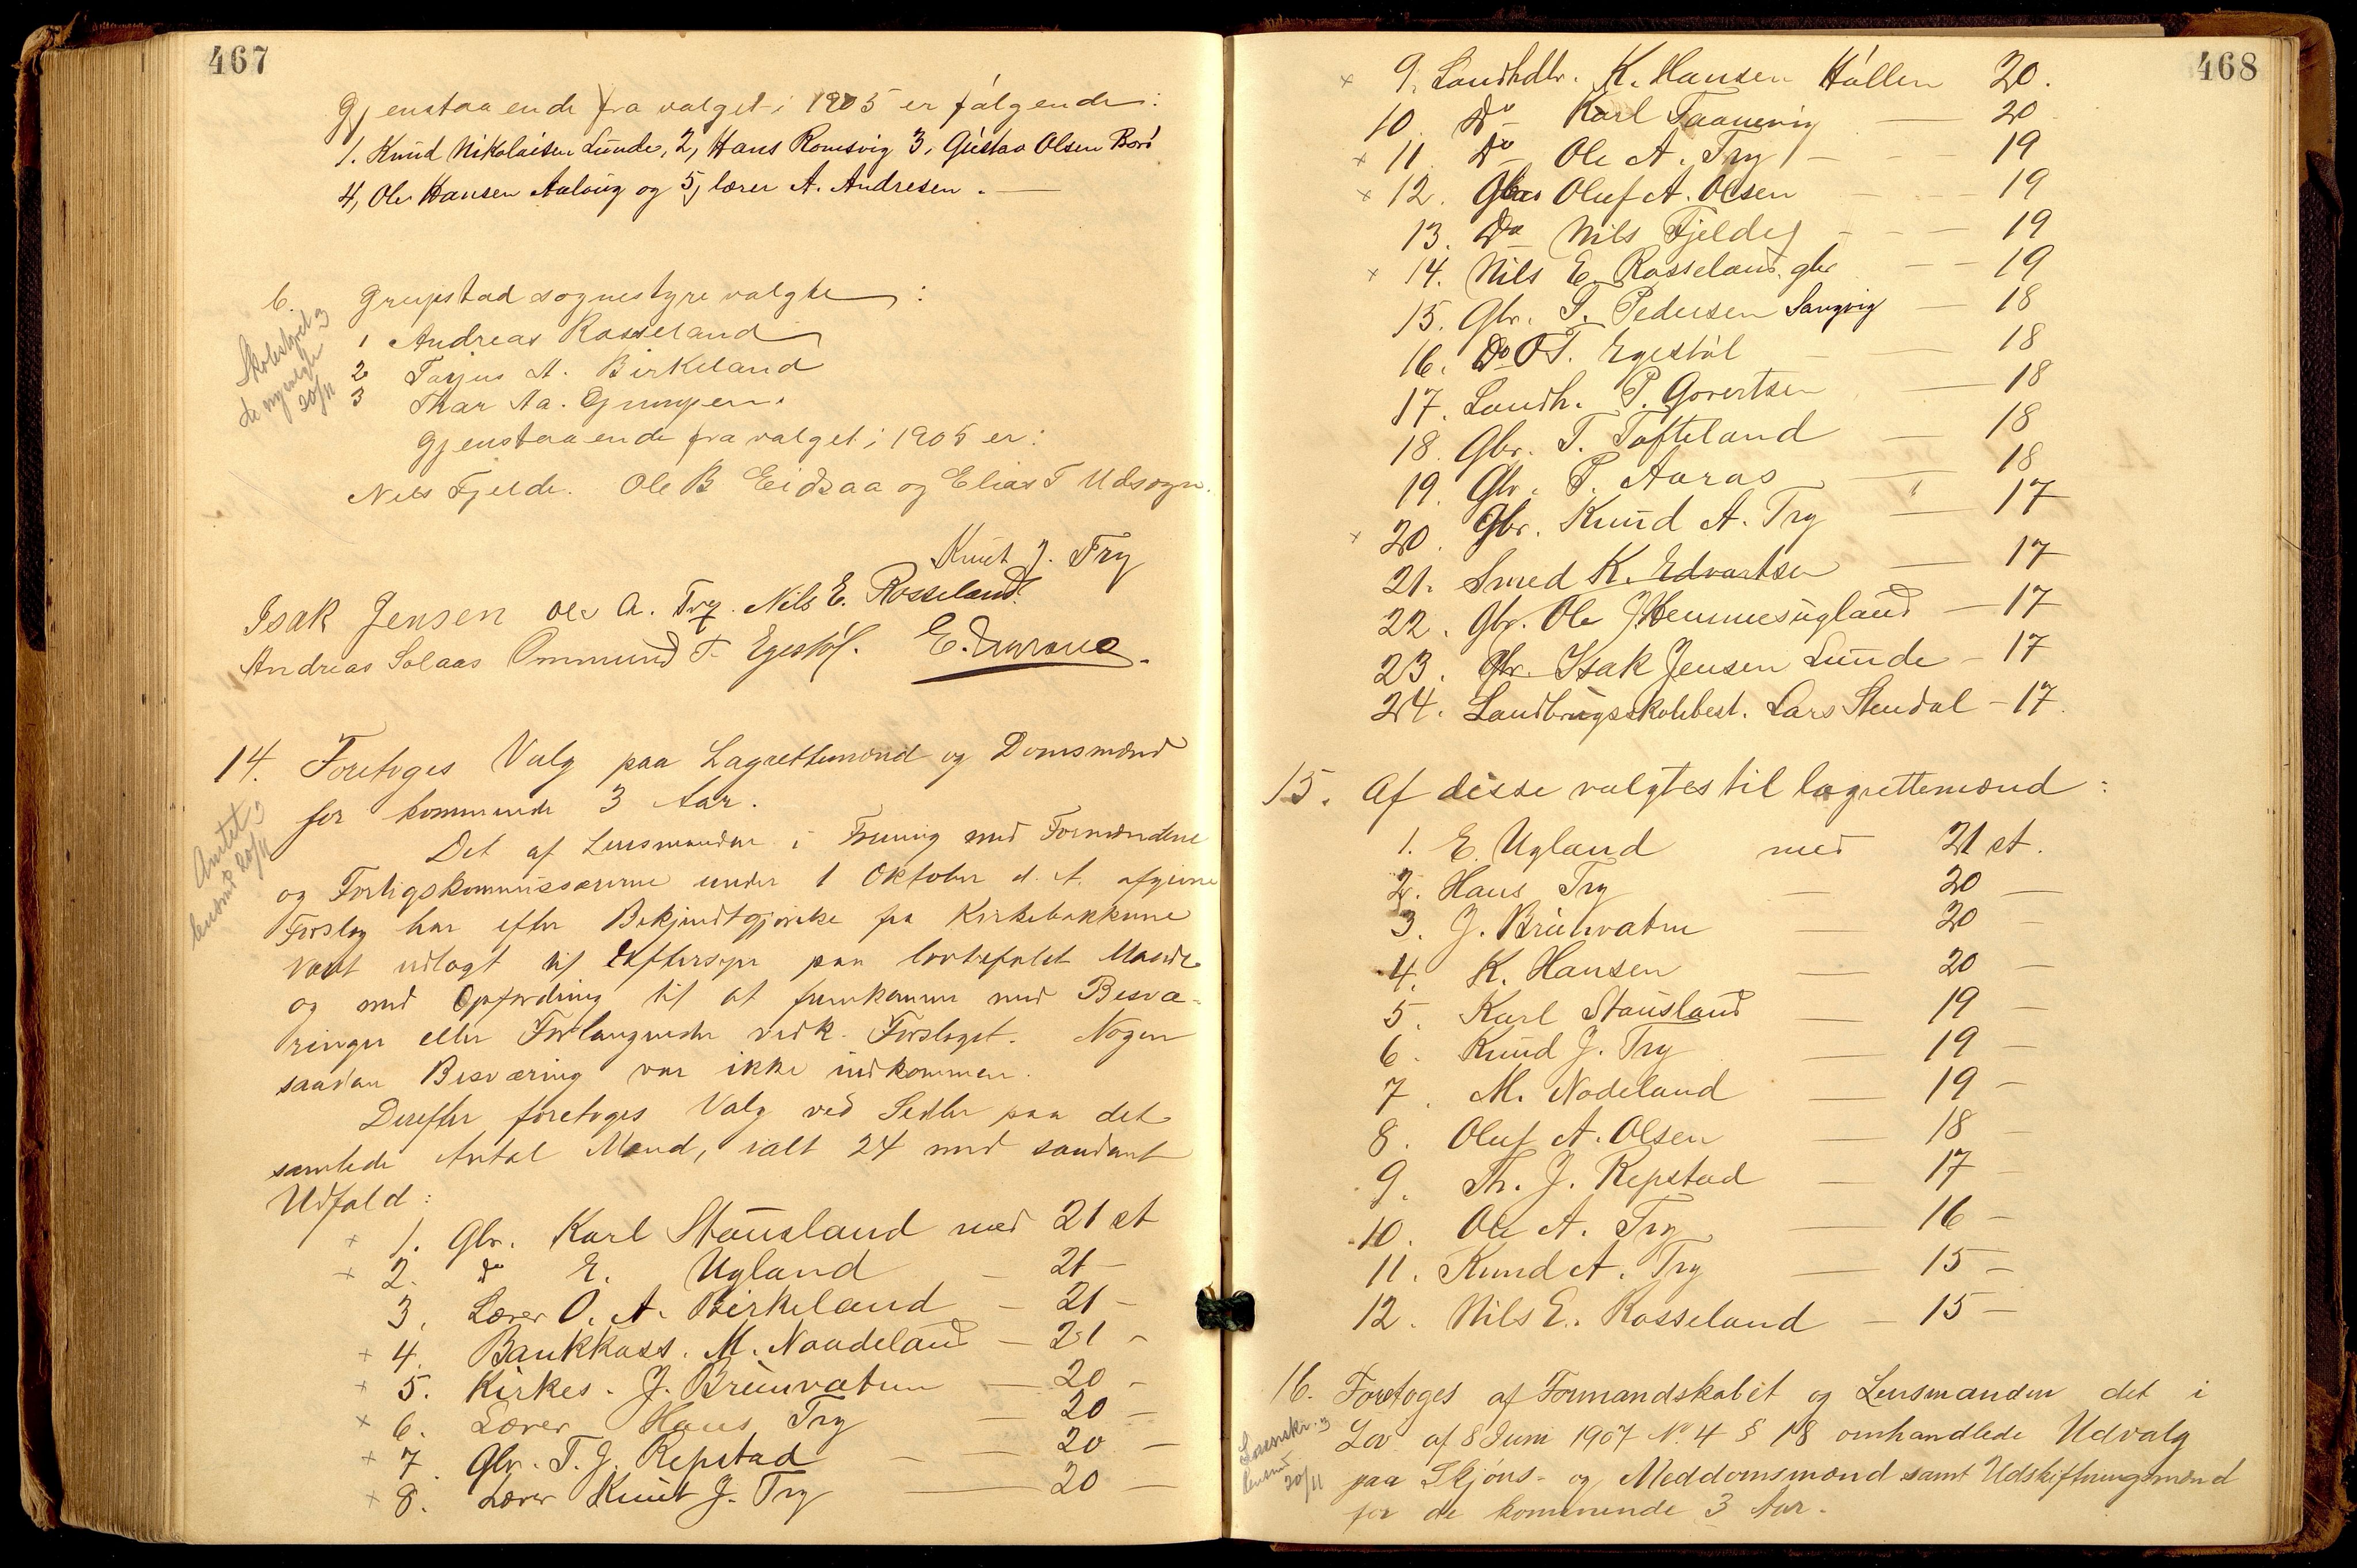 467
Gjenstaaende fra valget i 1905 er følgende:
1. Knud Nikolaisen Lunde, 2, Hans Romsvig 3, Gustav Olsen Borø
4, Ole Hansen Aalvig og 5, lærer A. Andresen.
b. Greipstad sognestyre valgte:
1 Andreas Rosseland
2 Tarjus A. Birkeland
3 Thar Aa. Grumpen.
Skolestyret
de nyvalgte
20/11
Gjenstaaende fra valget i 1905 er:
Nils Fjelde. Ole B Eidsaa og Elias T Udsogn.
Knut J. Try
Isak Jensen Ole A. Try. Nils E. Rosseland.
Andreas Solaas Ommund T. Egestøl. E.
14. Foretoges Valg paa Lagrettemænd og Domsmænd
for kommende 3 Aar.
Amtet
lensmd 20/11
Det af Lensmanden i Forening med Formændene
og Forligskommissærerne under 1 Oktober d. A. afgivne
Forslag har efter Bekjendtgjørelse fra Kirkebakkerne
været udlagt til Eftersyn paa lovbefalet Maade
og med Opfordring til at fremkomme med Besvæ-
ringer eller Forlangender vedk. Forslaget. Nogen
saadan Besværing var ikke indkommen.
Derefter foretoges Valg ved Sedler paa det
samlede Antal Mænd, ialt 24 med saadant
Udfald:
x 1. Gbr. Karl Stausland med 21 st
x 2. do E. Ugland - 21 -
3. Lærer O. A. Birkeland - 21 -
x 4. Bankkass. M. Naadeland - 21 -
x 5. Kirkes. J. Brunvatne - 20 -
x 6. Lærer Hans Try - 20 -
x 7. Gbr. T. J. Repstad - 20 -
x 8. Lærer Knut J. Try - 20 -
468
x 9. Landhdlr. K. Hansen Høllen 20.
10. Do Karl Taanevig - 20
x 11. Do Ole A. Try - 19
x 12. Gbr Oluf A. Olsen - 19
13. Do Nils Fjelde - 19
x 14. Nils E. Rosseland. gbr - 19
15. Gbr. S. Pedersen Sangvig - 18
16. Do O T. Egestøl - 18
17. Landh. P. Govertsen - 18
18. Gbr. T. Tofteland - 18
19. Gbr. P. Aaras - 18
x 20. Gbr. Knud A. Try - 17
21. Smed K. Edvartsen - 17
22. Gbr. Ole J Hemmesugland - 17
23. Gbr. Isak Jensen Lunde - 17
24. Landbrugsskolebest. Lars Stendal - 17.
15. Af disse valgtes til lagrettemænd:
1. E. Ugland med 21 st.
2. Hans Try - 20 -
3. J. Brunvatne - 20 -
4. K. Hansen - 20 -
5. Karl Stausland - 19 -
6. Knud J. Try - 19 -
7. M. Nodeland - 19 -
8. Oluf A. Olsen - 18 -
9. Th. J. Repstad - 17 -
10. Ole A. Try - 16 -
11. Knud A. Try - 15 -
12. Nils E. Rosseland - 15 -
16. Foretoges af Formandskabet og Lensmanden det i
Lov af 8 Juni 1907 No. 4 § 18 omhandlede Udvalg
Sorenskr.
lensmd
20/11
paa Skjøns- og Meddomsmænd samt Udskiftningsmænd
for de kommende 3 Aar.